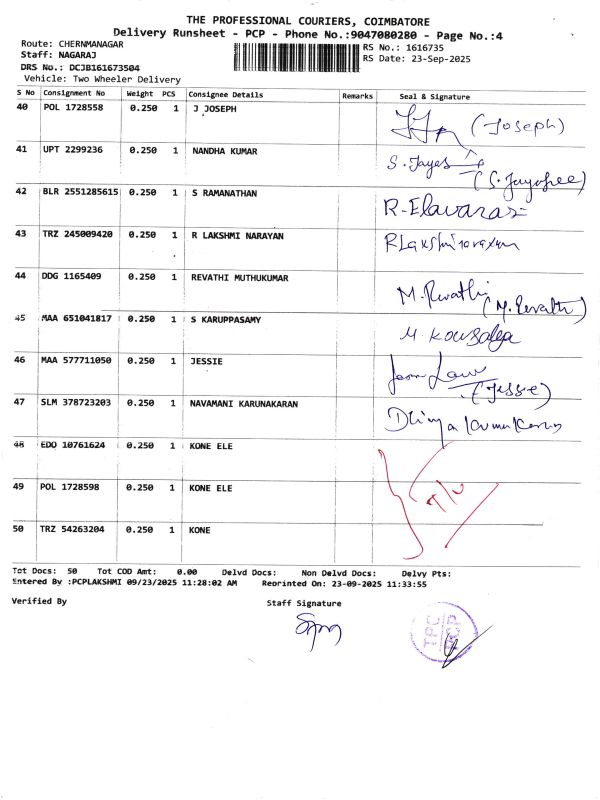 THE PROFESSIONAL COURIERS, COIMBATORE
Delivery Runsheet - PCP - Phone No.:9047080280 - Page No.:4
Route: CHERNMANAGAR
RS No.: 1616735
Staff: NAGARAJ
RS Date: 23-Sep-2025
DRS No.: DCJB161673504
Vehicle: Two Wheeler Delivery
S No Consignment No Weight PCS Consignee Details Remarks Seal & Signature
40 POL 1728558 0.250 1 J JOSEPH (Joseph)
41 UPT 2299236 0.250 1 NANDHA KUMAR S. Jayas
(S. Jayasree)
42 BLR 2551285615 0.250 1 S RAMANATHAN R-Elavarasi
43 TRZ 245009420 0.250 1 R LAKSHMI NARAYAN R Lakshminarayan
44 DDG 1165409 0.250 1 REVATHI MUTHUKUMAR M. Revathi (M. Revathi)
45 MAA 651041817 0.250 1 S KARUPPASAMY M Kowsalya
46 MAA 577711050 0.250 1 JESSIE
(Jessie)
47 SLM 378723203 0.250 1 NAVAMANI KARUNAKARAN
48 EDO 10761624 0.250 1 KONE ELE
49 POL 1728598 0.250 1 KONE ELE T/U
50 TRZ 54263204 0.250 1 KONE
Tot Docs: 50 Tot COD Amt: 0.00 Delvd Docs: Non Delvd Docs: Delvy Pts:
Entered By :PCPLAKSHMI 09/23/2025 11:28:02 AM Reorinted On: 23-09-2025 11:33:55
Verified By Staff Signature
TPC
PCP